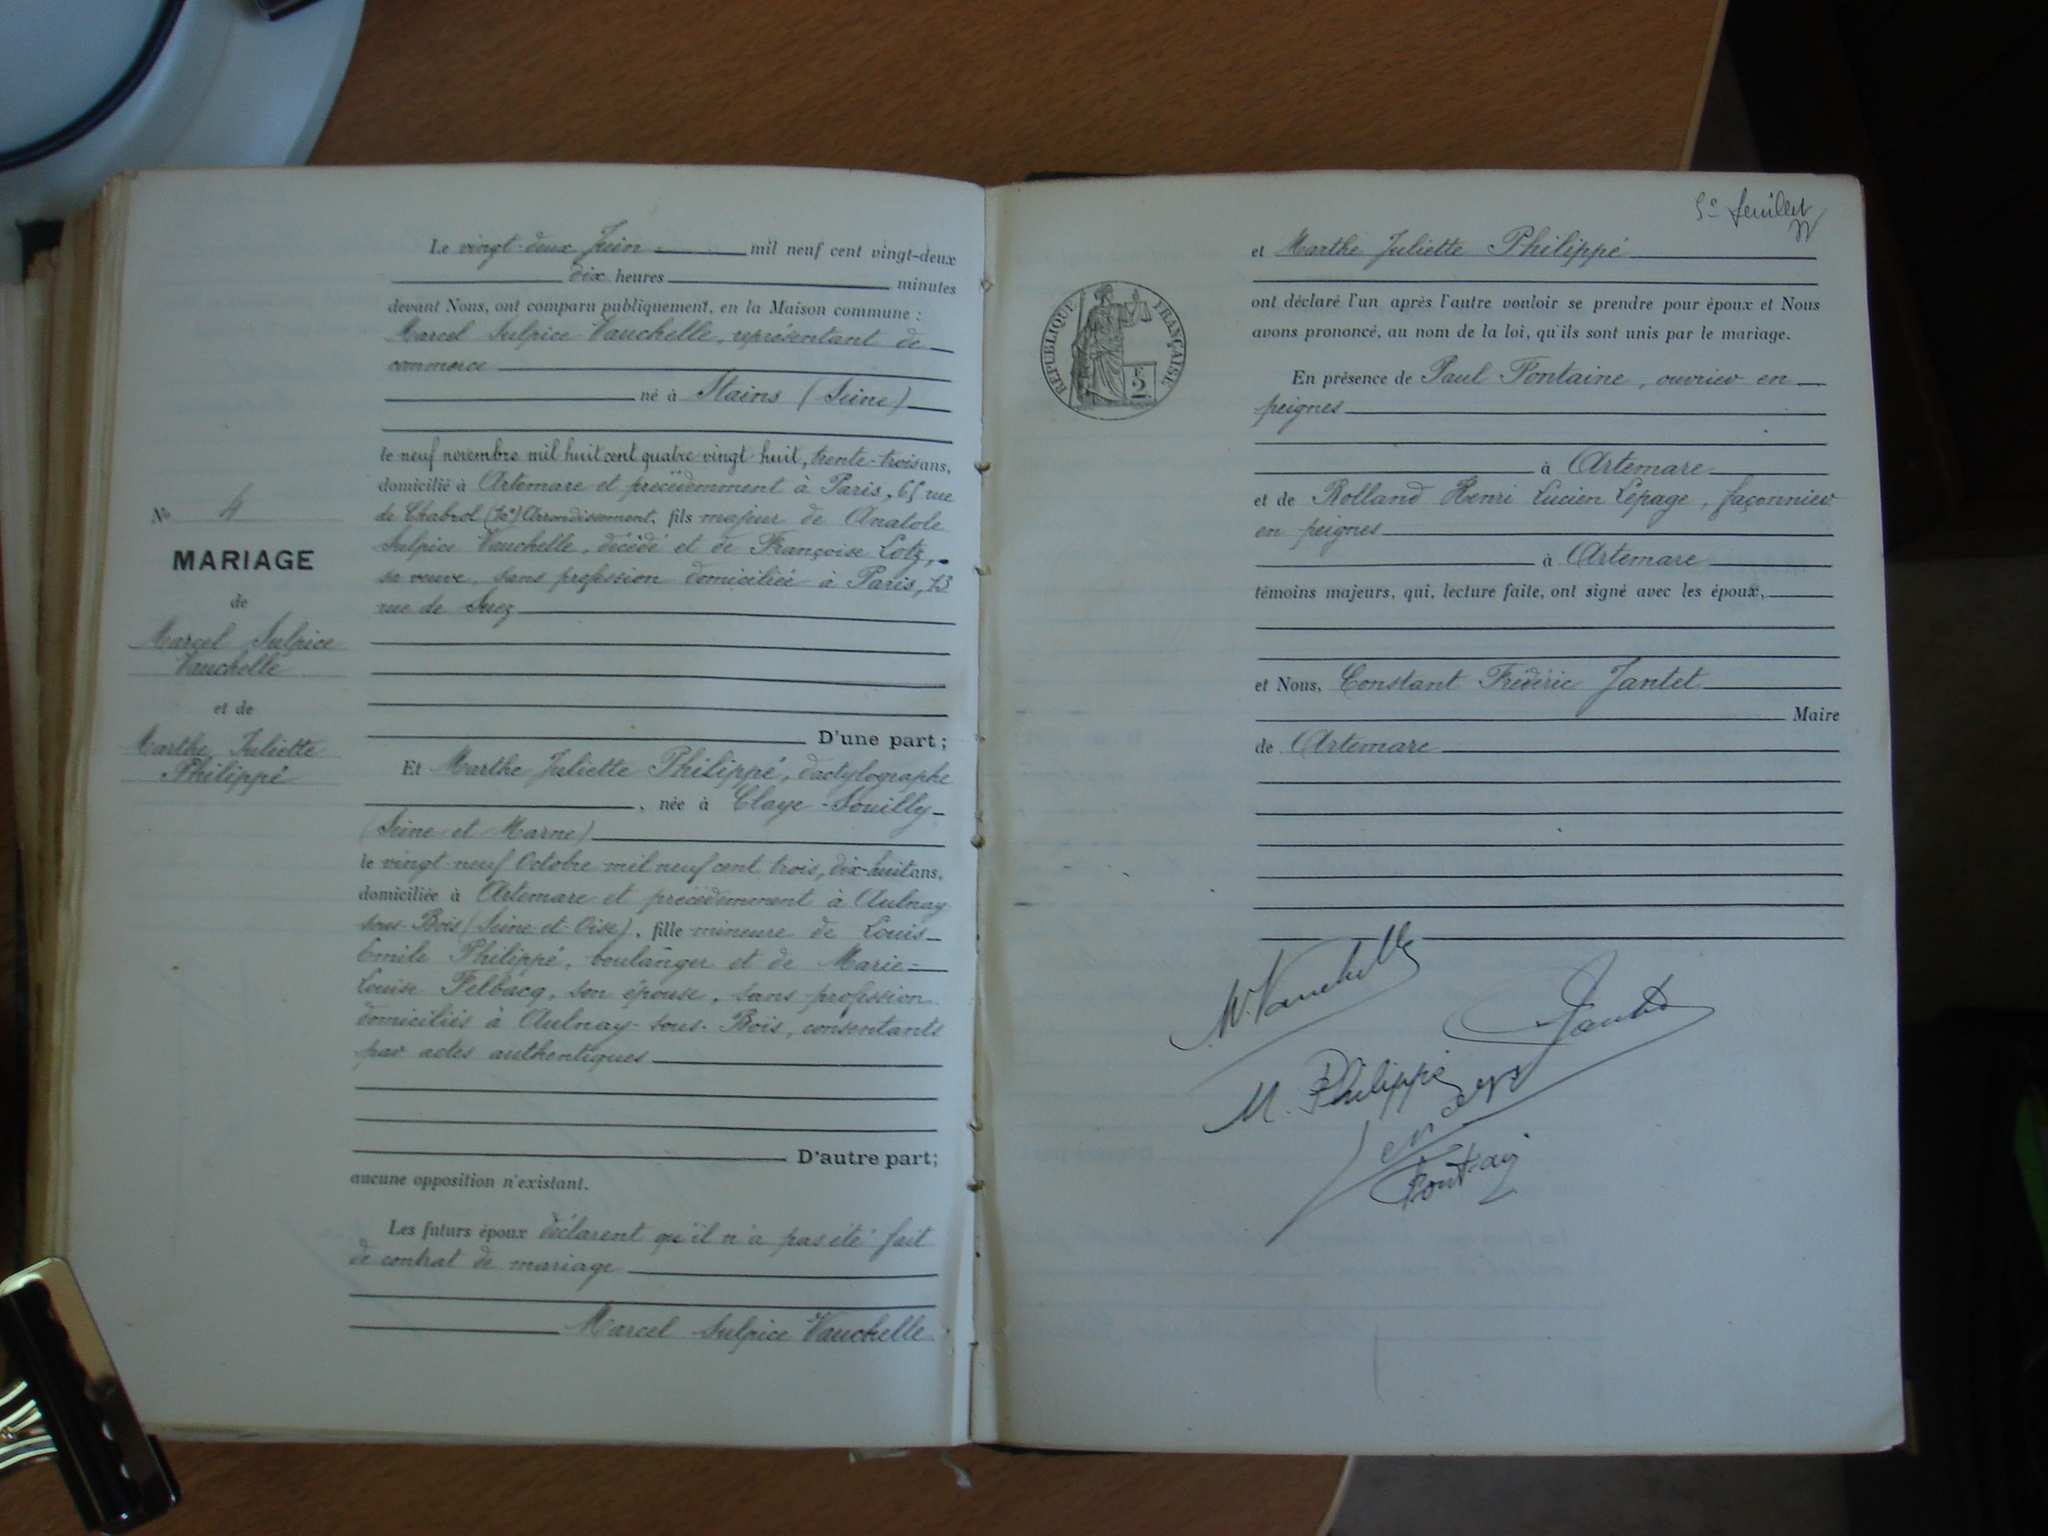 Le vingt-deux Juin mil neuf cent vingt-deux
dix heures minutes
devant Nous, ont comparu publiquement, en la Maison commune :
Marcel Sulpice Vauchelle, représentant de
commerce
né à Stains (Seine)
le neuf novembre mil huit cent quatre vingt huit, trente-trois ans,
domicilié à Artemare et précédemment à Paris, 65 rue
de Chabrol (10e) Arrondissement, fils majeur de Anatole
Sulpice Vauchelle, décédé et de Françoise Lotz,
sa veuve, sans profession domiciliée à Paris, 13
rue de Suez
D'une part ;
Et Marthe Juliette Philippé, dactylographe
, née à Claye-Souilly
(Seine et Marne)
le vingt neuf Octobre mil neuf cent trois, dix-huit ans,
domiciliée à Artemare et précédemment à Aulnay
sous-Bois (Seine-et-Oise), fille mineure de Louis
Emile Philippé, boulanger et de Marie-
Louise Felbacq, son épouse, sans profession
domiciliés à Aulnay-sous-Bois, consentants
par actes authentiques
D'autre part ;
aucune opposition n'existant.
Les futurs époux déclarent qu'il n'a pas été fait
de contrat de mariage
Marcel Sulpice Vauchelle
No 4
MARIAGE
de
Marcel Sulpice
Vauchelle
et de
Marthe Juliette
Philippé
5e feuillet
et Marthe Juliette Philippé
ont déclaré l'un après l'autre vouloir se prendre pour époux et Nous
avons prononcé, au nom de la loi, qu'ils sont unis par le mariage.
RÉPUBLIQUE FRANÇAISE
2 F
En présence de Paul Fontaine, ouvrier en
peignes
à Artemare
et de Rolland Henri Lucien Lepage, façonnier
en peignes
à Artemare
témoins majeurs, qui, lecture faite, ont signé avec les époux,
et Nous, Constant Frédéric Jantet
Maire
de Artemare
M. Vauchelle
Jantet
M. Philippé
Fontaine